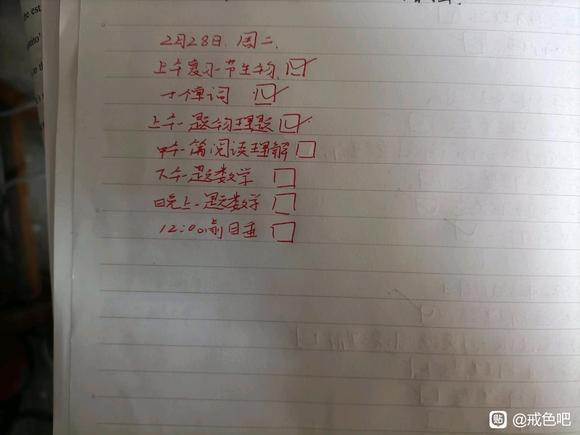 2月28日. 周二.
上午复习一节生物
十个单词
上午一题物理题
中午一篇阅读理解
下午一题数学
晚上一题数学
12:00前目垂
贴 @戒色吧